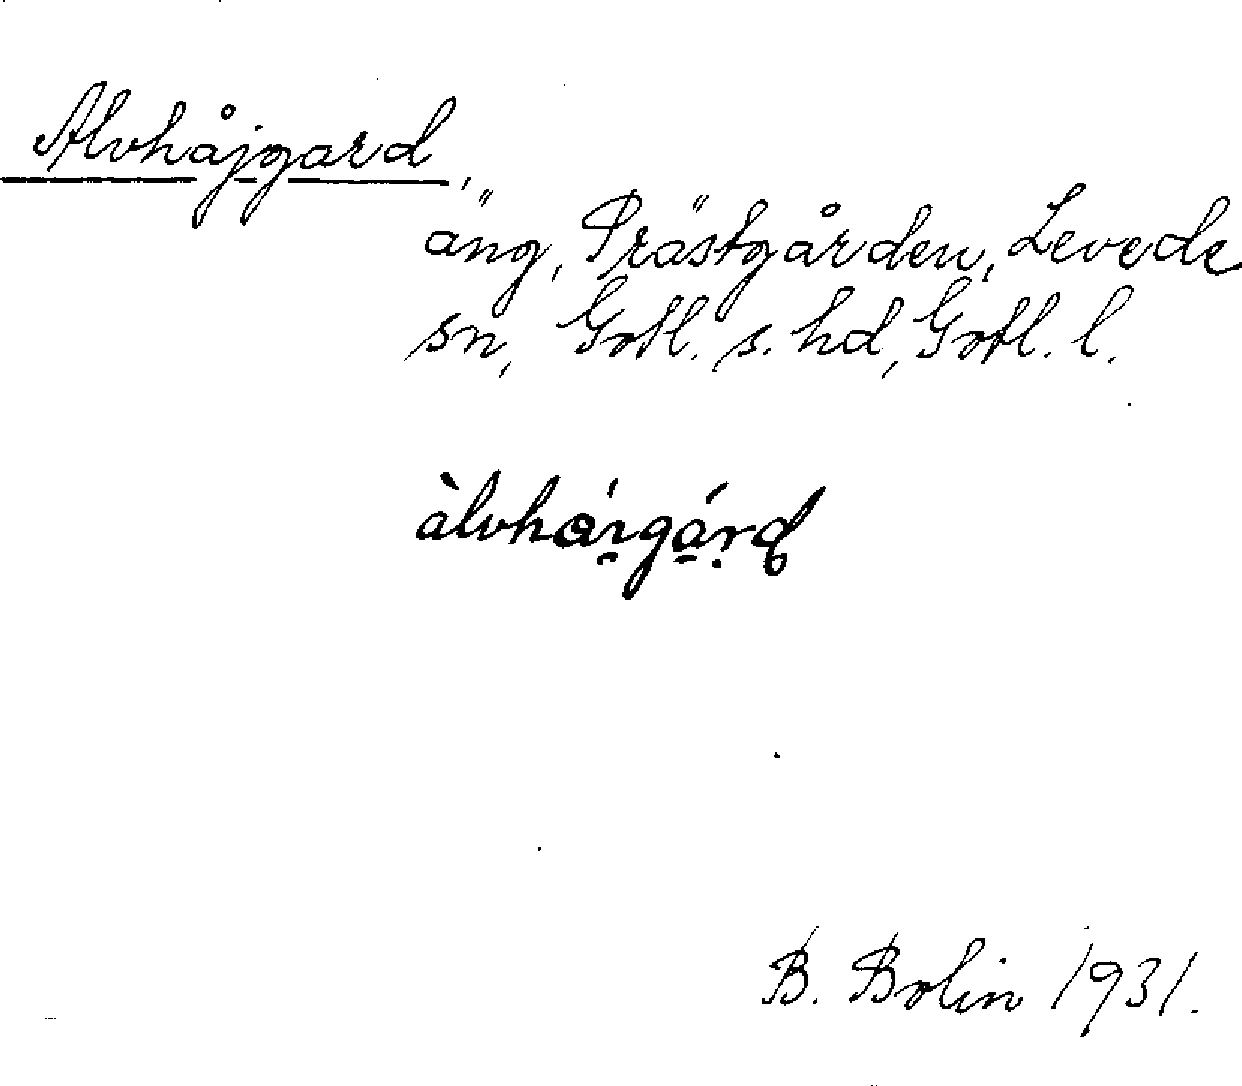 Alvhåjgard,
äng, Prästgården, Levede
sn, Gotl. s. hd, Gotl. l.
B. Bolin 1931.